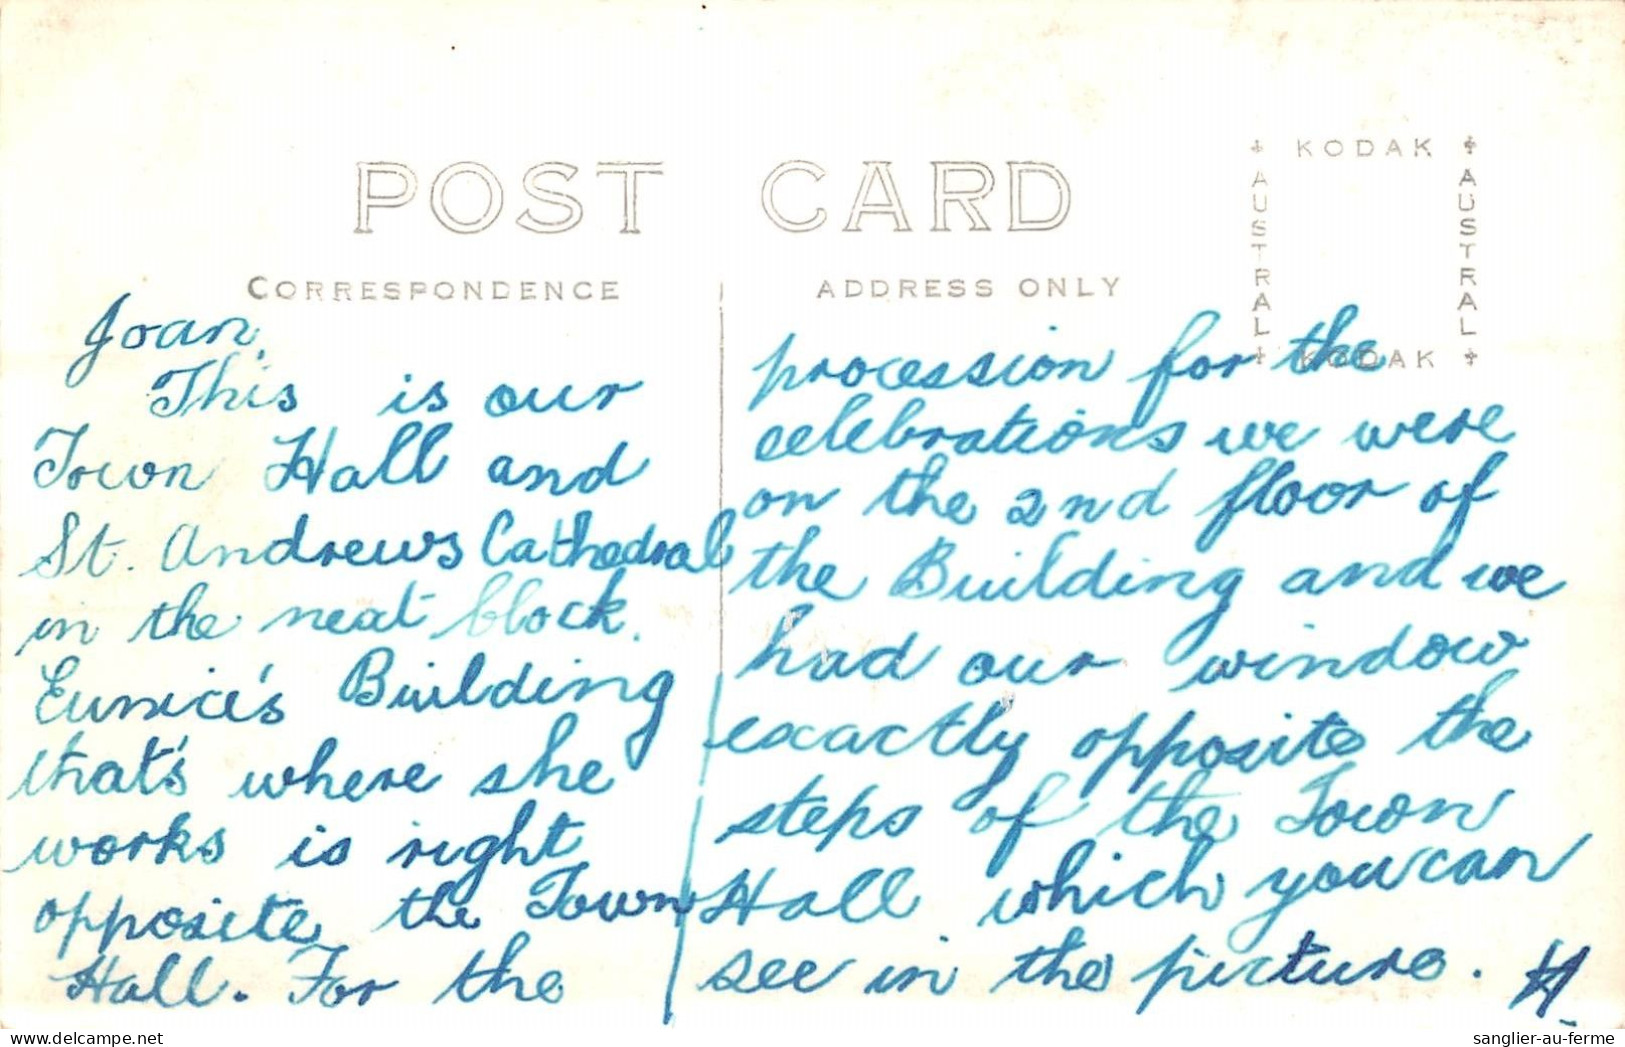 POST CARD
CORRESPONDENCE
ADDRESS ONLY
KODAK
AUSTRAL
AUSTRAL
KODAK
Joan,
This is our
Town Hall and
St. Andrews Cathedral
in the next block.
Eunice's Building
that's where she
works is right
opposite the Town
Hall. For the
procession for the
celebrations we were
on the 2nd floor of
the Building and we
had our window
exactly opposite the
steps of the Town
Hall which you can
see in the picture.
H.
sanglier-au-ferme